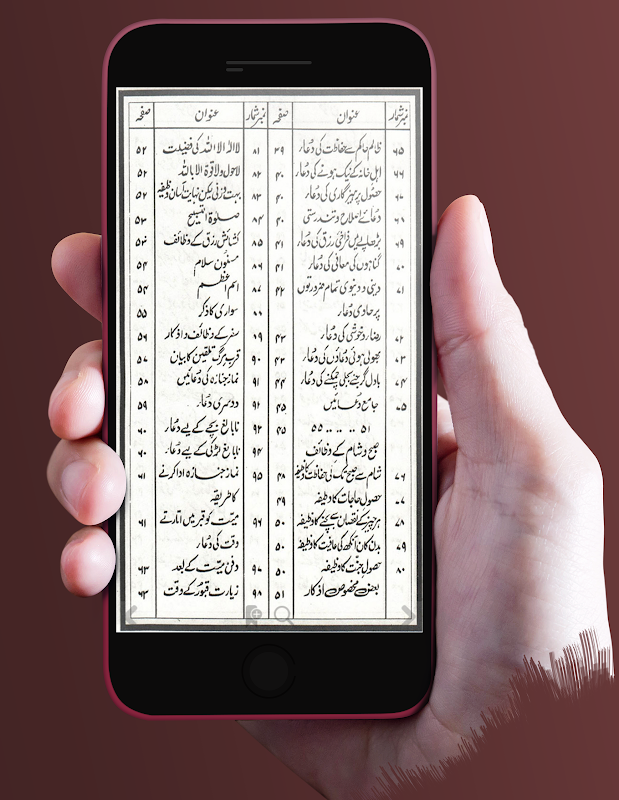 نمبر شمار عنوان صفحہ
۶۵ ظالم حاکم سے حفاظت کی دُعار ۳۹
۶۶ اہل خانہ کے نیک ہونے کی دُعار ۴۰
۶۷ حصُول پرہیزگاری کی دُعار ۴۰
۶۸ دعائے اصلاح و تندرستی ۴۰
۶۹ بڑھاپے میں فراخئ رزق کی دُعار ۴۱
۷۰ گناہوں کی معافی کی دُعار ۴۱
۷۱ دینی و دنیوی تمام ضرورتوں ۴۲
پر حاوی دُعار
۷۲ رضار و خوشی کی دُعار ۴۳
۷۳ بھولی ہوئی دُعاؤں کی دُعار ۴۳
۷۴ بادل گرجنے بجلی چمکنے کی دُعار ۴۴
۷۵ جامع دُعائیں ۴۵
۵۱ .. .. .. ۵۵ ۴۵
صبح و شام کے وظائف
۷۶ شام سے صبح تک کی حفاظت کا وظیفہ ۴۸
۷۷ حصول حاجات کا وظیفہ ۴۹
۷۸ ہر چیز کے نقصان سے بچنے کا وظیفہ ۵۰
۷۹ بدن کان آنکھ کی عافیت کا وظیفہ ۵۰
۸۰ حصول جنّت کا وظیفہ ۵۰
بعض مخصوص اذکار ۵۱
نمبر شمار عنوان صفحہ
۸۱ لا الٰہ الا اللہ کی فضیلت ۵۲
۸۲ لاحول ولا قوۃ الا باللہ ۵۲
۸۳ بہت وزنی لیکن نہایت آسان وظیفہ ۵۲
۸۴ صلوٰۃ التسبیح ۵۳
۸۵ کشائش رزق کے وظائف ۵۳
۸۶ مسنُون سلام ۵۴
۸۷ اسم اعظم ۵۴
۸۸ سواری کا ذکر ۵۵
۸۹ سفر کے وظائف و اذکار ۵۶
۹۰ قریب مرگ تلقین کا بیان ۵۷
۹۱ نماز جنازہ کی دُعائیں ۵۸
۹۲ دوسری دُعار ۵۹
۹۳ نابالغ بچے کے لیے دُعار ۶۰
۹۴ نابالغ لڑکی کے لیے دُعار ۶۰
۹۵ نماز جنازہ ادا کرنے ۶۱
کا طریقہ
۹۶ میّت کو قبر میں اتارتے ۶۱
وقت کی دُعار
۹۷ دفن میّت کے بعد ۶۳
۹۸ زیارت قبُور کے وقت ۶۳